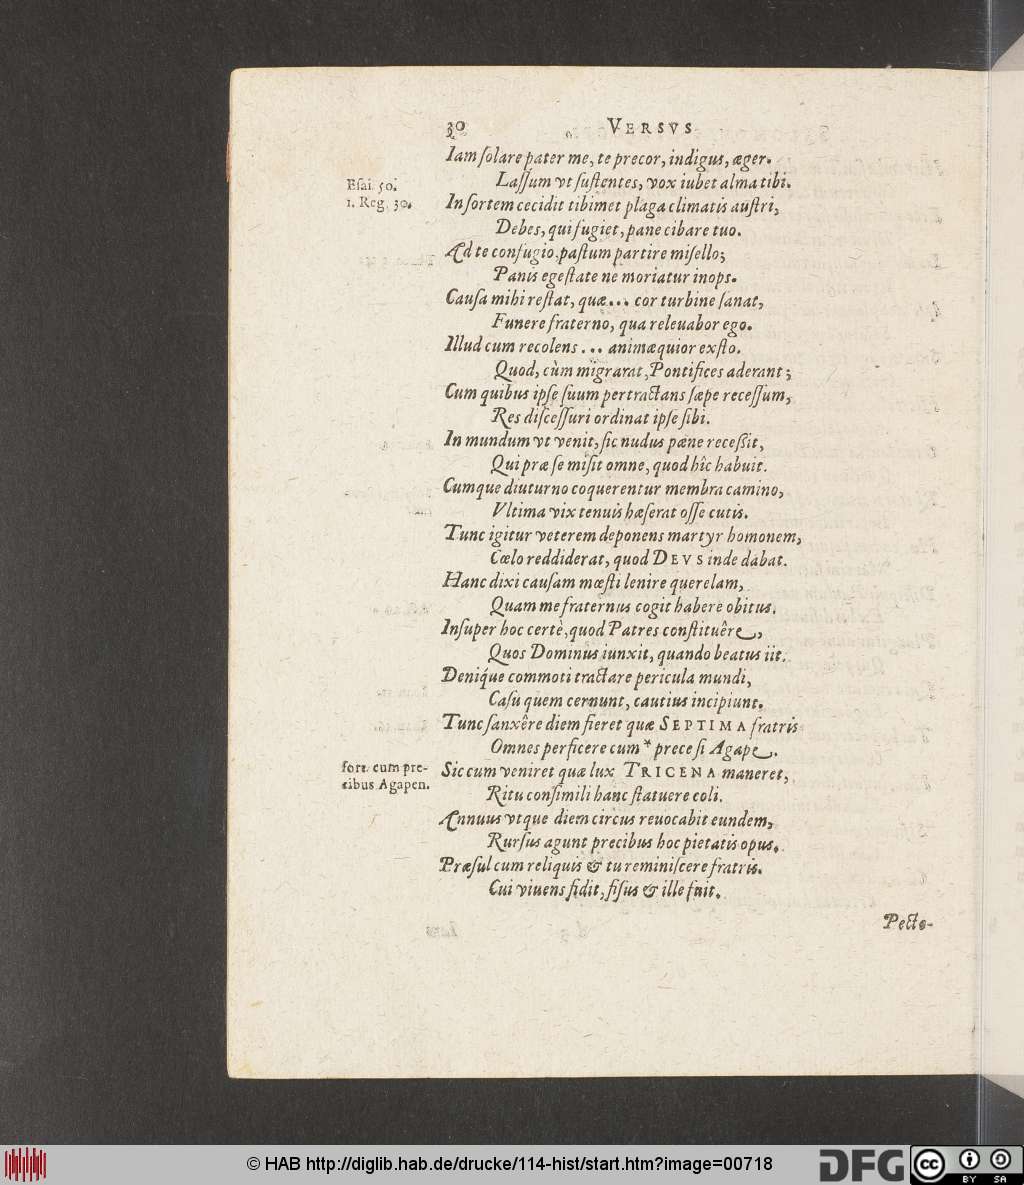 30 VERSVS
Iam ſolare pater me, te precor, indigus, æger.
Eſai. 50.
Laſſum vt ſuſtentes, vox iubet alma tibi.
1. Reg. 30.
In ſortem cecidit tibimet plaga climatis auſtri,
Debes, qui fugiet, pane cibare tuo.
Ad te confugio, paſtum partire miſello;
Panis egeſtate ne moriatur inops.
Cauſa mihi reſtat, quæ... cor turbine ſanat,
Funere fraterno, qua releuabor ego.
Illud cum recolens ... animæquior exſto.
Quod, cùm migrarat, Pontifices aderant;
Cum quibus ipſe ſuum pertractans ſæpe receſſum,
Res diſceſſuri ordinat ipſe ſibi.
In mundum vt venit, ſic nudus pæne receſſit,
Qui præ ſe miſit omne, quod hîc habuit.
Cumque diuturno coquerentur membra camino,
Vltima vix tenuis hæſerat oſſe cutis.
Tunc igitur veterem deponens martyr homonem,
Cœlo reddiderat, quod DEVS inde dabat.
Hanc dixi cauſam mœſti lenire querelam,
Quam me fraternus cogit habere obitus.
Inſuper hoc certè, quod Patres conſtituêre,
Quos Dominus iunxit, quando beatus iit.
Deniq́ue commoti tractare pericula mundi,
Caſu quem cernunt, cautius incipiunt.
Tunc ſanxêre diem fieret quæ SEPTIMA fratris
Omnes perficere cum * prece ſi Agape.
fort. cum pre-
cibus Agapen.
Sic cum veniret quæ lux TRICENA maneret,
Ritu conſimili hanc ſtatuere coli.
Annuus vtque diem circus reuocabit eundem,
Rurſus agunt precibus hoc pietatis opus.
Præſul cum reliquis & tu reminiſcere fratris.
Cui viuens fidit, fiſus & ille fuit.
Pecto-
© HAB http://diglib.hab.de/drucke/114-hist/start.htm?image=00718
DFG
cc
BY SA